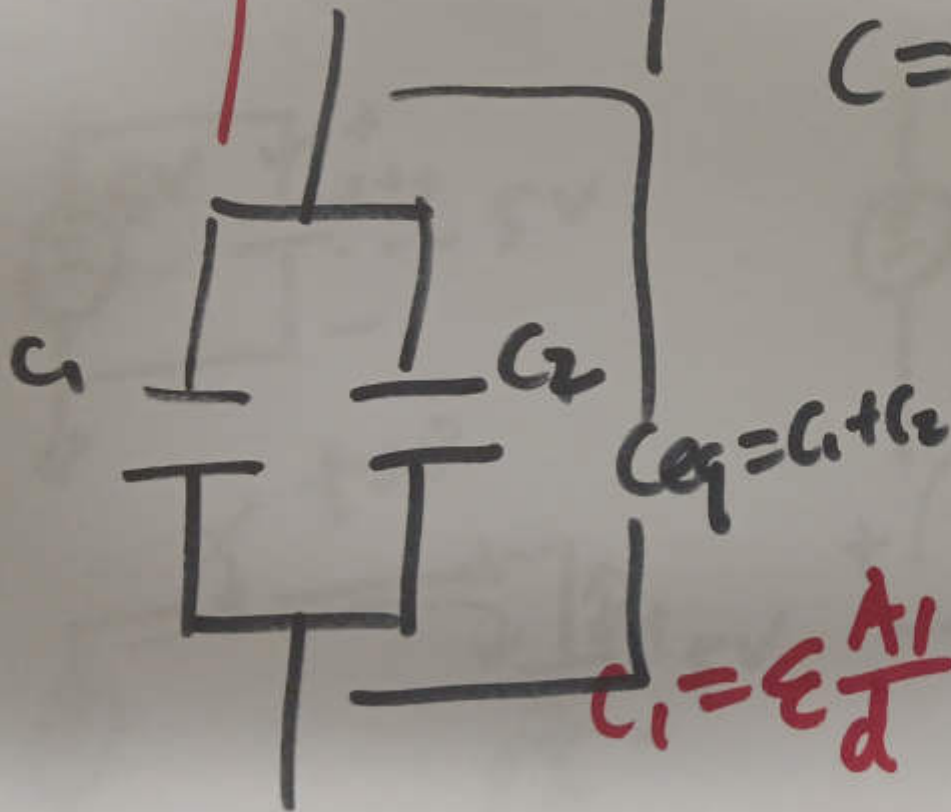 C=
C₁
C₂
Ceq=C₁+C₂
C₁=ε A1/d